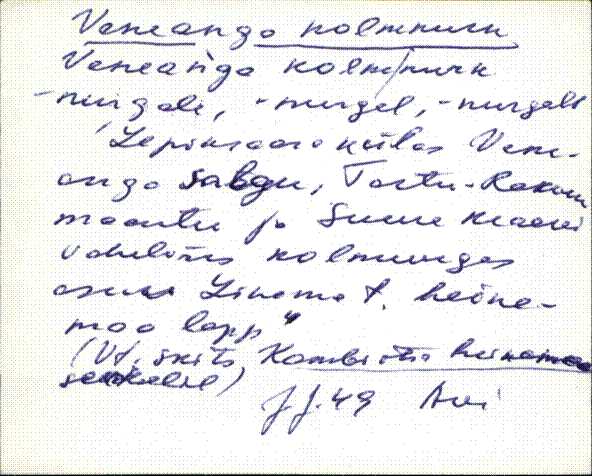 Veneaugo kolmnurk
Veneaugo kolm/nurk
-nurgale, -nurgel, -nurgelt
"Lepiksaare külas Vene-
augo salgu, Tartu-Rakvere
maantee ja Suure kraavi
vahelises kolmnurgas
asuv t. heina-
maa lapp"
(Vt. skits heinamaa
sedelil)
J J. 49